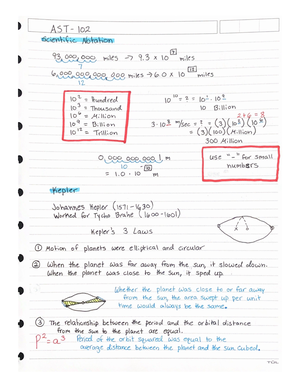 AST-102
Scientific Notation
93,000,000 miles → 9.3 × 10 7
7
6,000,000,000,000 miles → 6.0 × 10
12
10² = Hundred
10³ = Thousand
10⁶ = Million
10⁹ = Billion
10¹² = Trillion
10¹⁰ = ? = 10¹ · 10⁹
10 Billion
2+6 = 8
3·10⁸ m/sec = ? = (3)(10²)(10⁶)
= (3)(100)(Million)
300 Million
0,000,000,000.1 m
10
= 1.0 · 10
use "-" for small numbers.
Kepler
Johannes Kepler (1571-1630)
Worked for Tycho Brahe (1600-1601)
Kepler's 3 Laws
① Motion of planets were elliptical and circular
② When the planet was far away from the sun, it slowed down.
When the planet was close to the sun, it sped up.
Whether the planet was close to or far away
from the sun, the area swept up per unit
time would always be the same.
③ The relationship between the period and the orbital distance
from the sun to the planet are equal.
P² = a³
Period of the orbit squared was equal to the
average distance between the planet and the sun cubed.